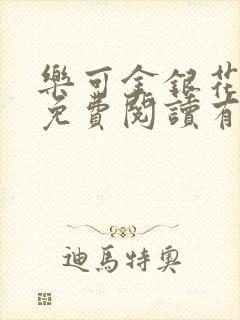 樂可金銀花
免費閱讀有
迪馬特奧